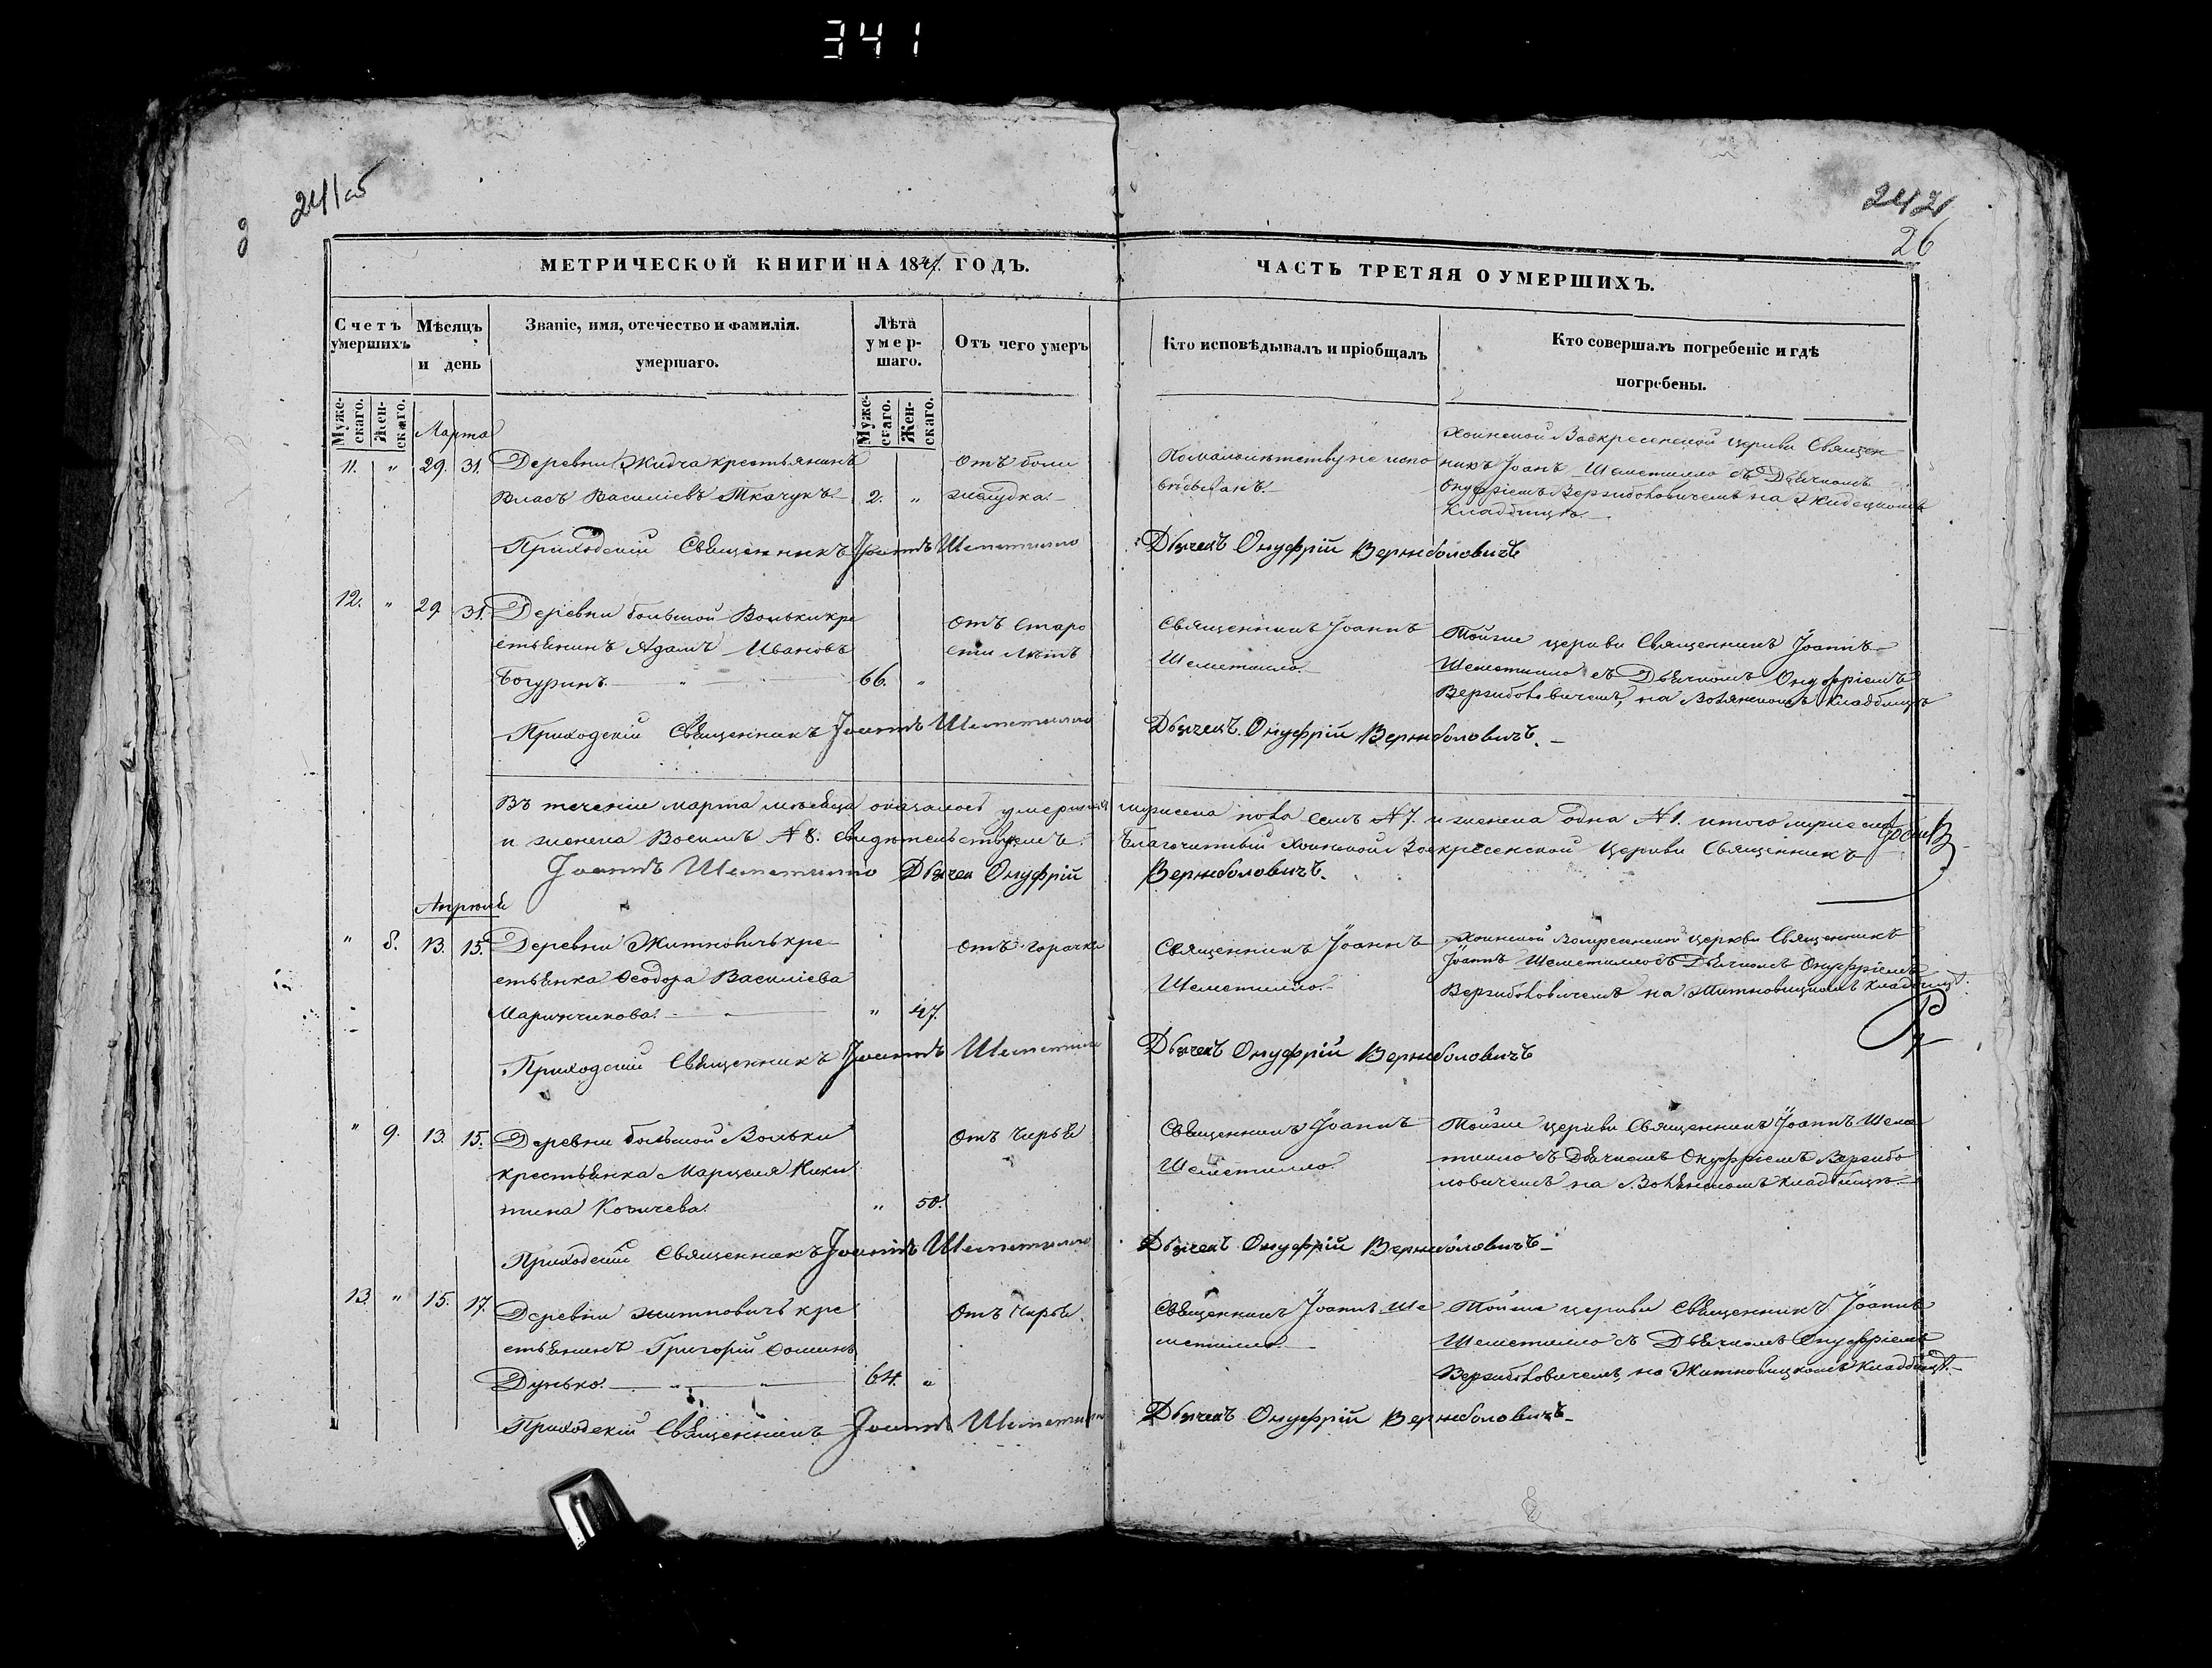 341
241 об
242
26
МЕТРИЧЕСКОЙ КНИГИ НА 1847. ГОДЪ.
ЧАСТЬ ТРЕТЯЯ О УМЕРШИХЪ.
Счетъ умершихъ
Мѣсяцъ и день
Званіе, имя, отечество и фамилія. умершаго.
Лѣта умер-шаго.
Отъ чего умеръ
Кто исповѣдывалъ и пріобщалъ
Кто совершалъ погребеніе и гдѣ погребены.
Муже-скаго.
Жен-скаго.
Муже-скаго.
Жен-скаго.
Марта
11. " 29. 31. Деревни Жидча крестьянинъ
Власъ Василіевъ Ткачукъ. 2. "
Отъ боли
желудка.
По малолѣтству не испо
вѣдыванъ.
Хоинской Воскресенской церкви Священ
никъ Іоанъ Шеметилло съ Дьячкомъ
Онуфріемъ Вержболовичемъ на Жидецкомъ
кладбищѣ.
Приходскій Священникъ Іоаннъ Шеметилло
Дьячекъ Онуфрій Вержболовичъ
12. " 29. 31. Деревни большой Вольки кре
стьянинъ Адамъ Ивановъ
Богуринъ. 66. "
Отъ старо
сти лѣтъ
Священникъ Іоаннъ
Шеметилло.
Тойже церкви Священникъ Іоаннъ
Шеметилло съ Дьячкомъ Онуфріемъ
Вержболовичемъ, на Волянскомъ кладбищѣ
Приходскій Священникъ Іоаннъ Шеметилло
Дьячекъ Онуфрій Вержболовичъ.
Въ теченіи марта мѣсяца оказалось умершихъ мужеска пола семъ N 7. и женска одна N 1. итого мужеска
и женска Восемъ N 8. свидѣтельствуемъ. Благочинный Хоинской Воскресенской Церкви Священникъ
Іоаннъ Шеметилло Дьячек Онуфрій Вержболовичъ.
Апрѣля
" 8. 13. 15. Деревни Житновичь кре-
стьянка Феодора Василіева
" 47.
Отъ горячки
Священникъ Іоаннъ
Шеметилло.
Хоинской Воскресенской церкви Священникъ
Іоаннъ Шеметилло съ Дьячкомъ Онуфріемъ
Вержболовичемъ на Житновицкомъ кладбищѣ.
Приходскій Священникъ Іоаннъ Шеметилло
Дьячекъ Онуфрій Вержболовичъ
" 9. 13. 15. Деревни большой Вольки
крестьянка Марцеля Ники
тина " 50.
Отъ Чирья
Священникъ Іоаннъ
Шеметилло.
Тойже церкви Священникъ Іоаннъ Шеме
тилло съ Дьячкомъ Онуфріемъ Вержбо
ловичемъ на Волянскомъ кладбищѣ.
Приходскій Священникъ Іоаннъ Шеметилло
Дьячекъ Онуфрій Вержболовичъ
13. " 15. 17. Деревни Житновичъ кре
стьянинъ Григорій Фоминъ
Дунько. 64. "
Отъ Чирья.
Священникъ Іоаннъ Ше
метилло.
Тойже церкви Священникъ Іоаннъ
Шеметилло съ Дьячкомъ Онуфріемъ
Вержболовичемъ, на Житновицкомъ кладбищѣ.
Приходскій Священникъ Іоаннъ Шеметилло
Дьячекъ Онуфрій Вержболовичъ